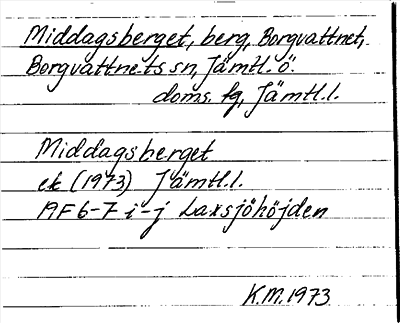 Middagsberget, berg, Borgvattnet,
Borgvattnets sn, Jämtl. ö.
doms. fg, Jämtl. l.
Middagsberget
ek (1973) Jämtl. l.
19F 6-7 i-j Laxsjöhöjden
K.M. 1973